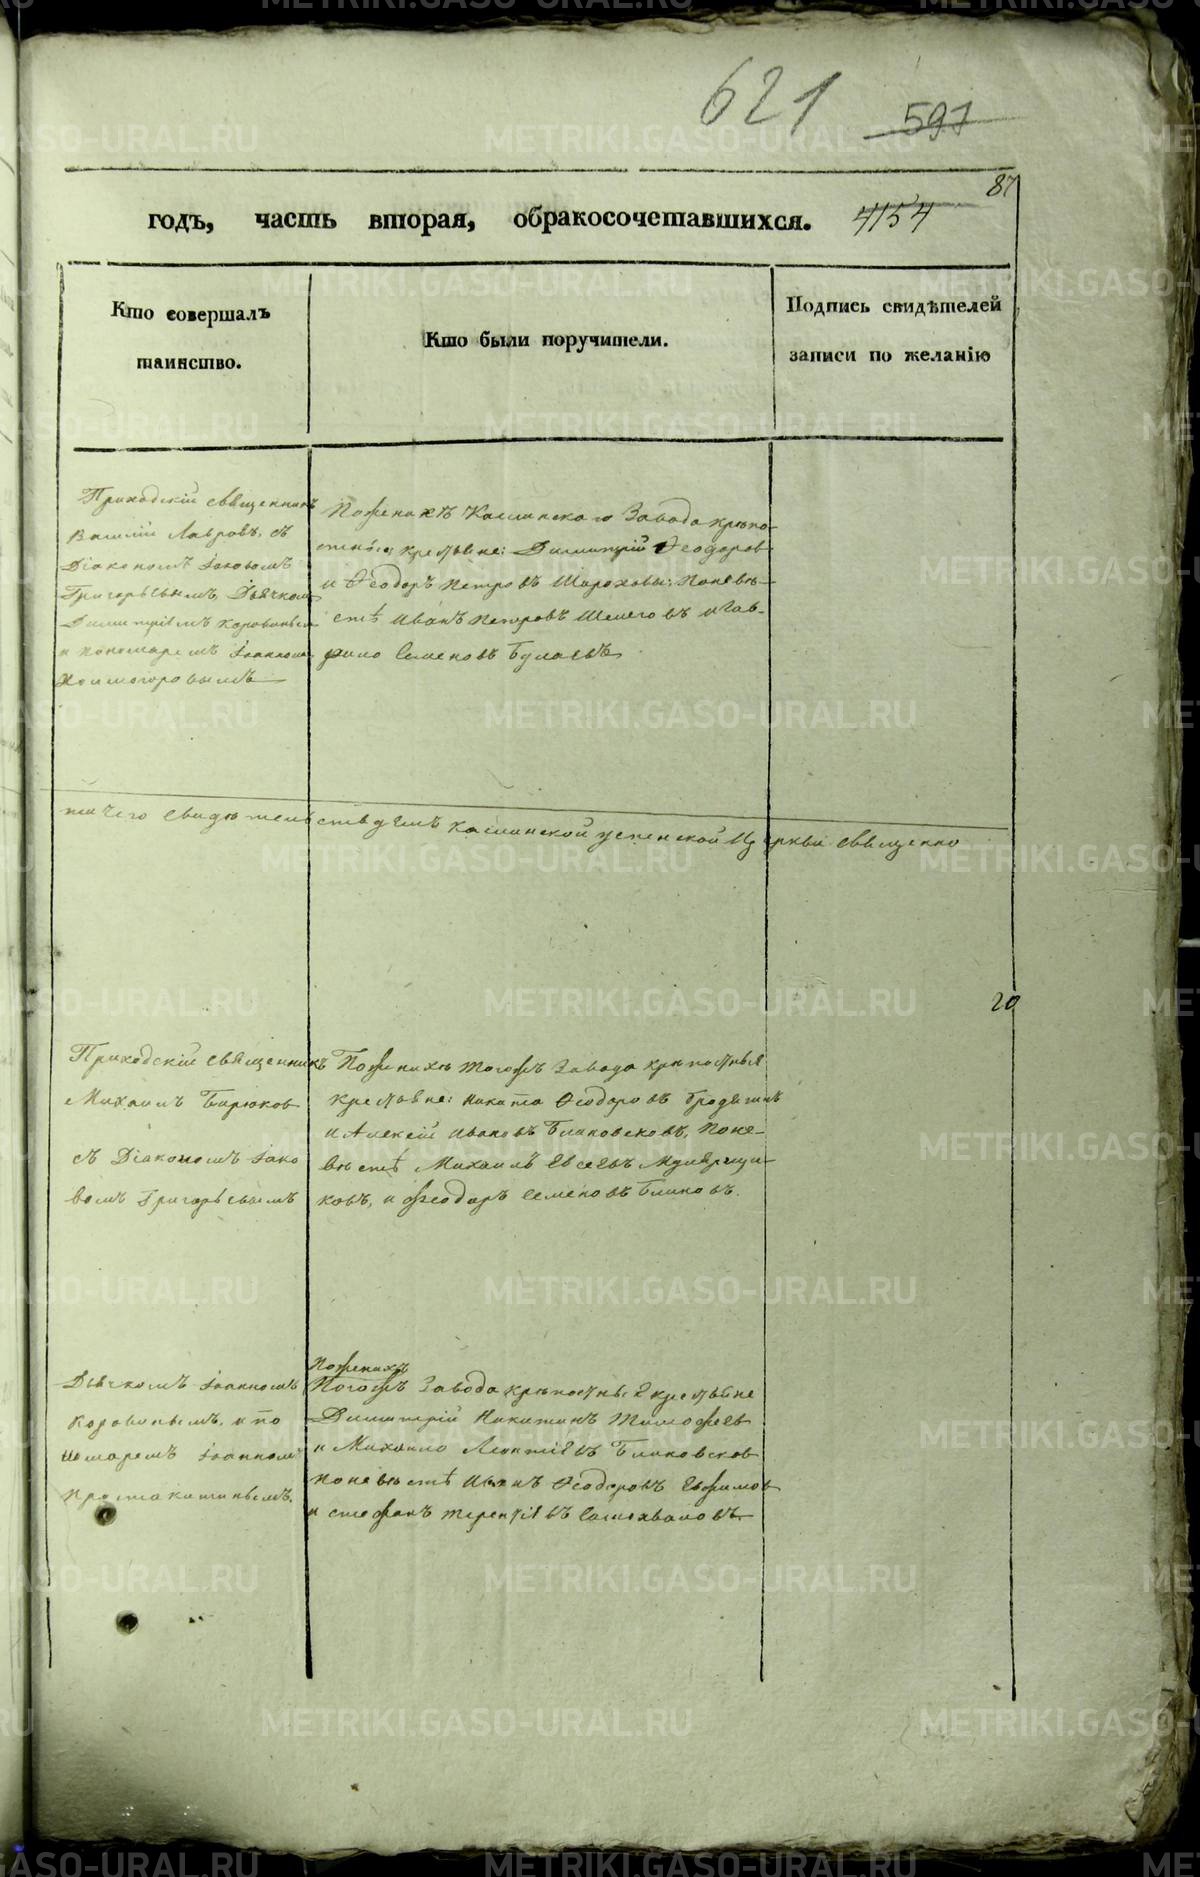 621 597
87
годъ, часть вторая, обракосочетавшихся. 4154
Кто совершалъ
таинство.
Кто были поручители.
Подпись свидѣтелей
записи по желанію
Приходскій священникъ
Василій Лавровъ, съ
Діакономъ Іаковомъ
Григорьевымъ, Дьячкомъ
Димитріемъ
и пономаремъ Іоанномъ
Холмогоровымъ
Поженихѣ Каслинскаго Завода крѣпо-
стные крестьяне: Димитрій Ѳеодоров
и Ѳеодоръ Петровъ Шороховы: Поневѣ-
стѣ Иванъ Петровъ и Гав-
рило Семеновъ Булаевъ
свидѣтельствуемъ Каслинской успенской Церкви священно
20
Приходскій священникъ
Михаилъ Бирюков
съ Діакономъ Іако
вомъ Григорьевымъ
Поженихѣ тогожъ Завода крѣпостныя
крестьяне: Никита Ѳеодоровъ
и Алексій Ивановъ Блиновсковъ, Поне-
вѣстѣ Михаилъ Евсеевъ
ковъ, и Феодоръ Семеновъ Блиновъ.
Дьячкомъ Іоанномъ
Коровинымъ, и по
номаремъ Іоанномъ
Поженихѣ
Тогожъ Завода крѣпостные крестьяне
Димитрій Никитинъ Тимофеев
и Михаило Леонтіевъ Блиновсков
поневѣстѣ Иванъ Ѳеодоровъ Ефимов
и Стефанъ Терентіевъ Самохваловъ.
METRIKI.GASO-URAL.RU